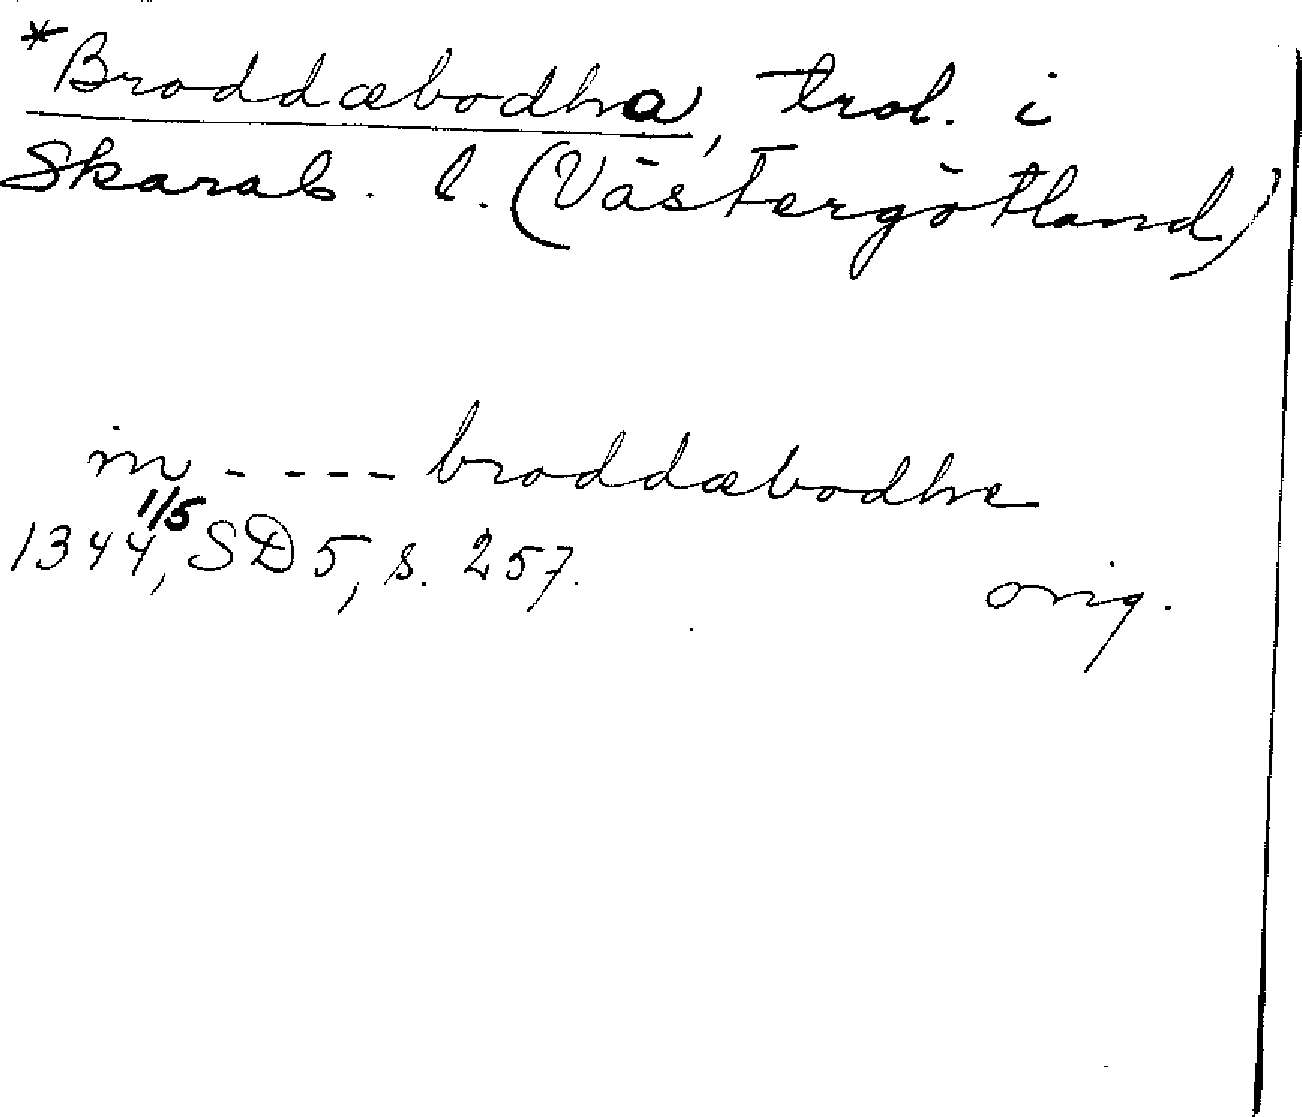 *Broddæbodha, trol. i
Skarab. l. (Västergötland)
in - - - - broddæbodhe
1344 1/5, SD 5, s. 257.
orig.